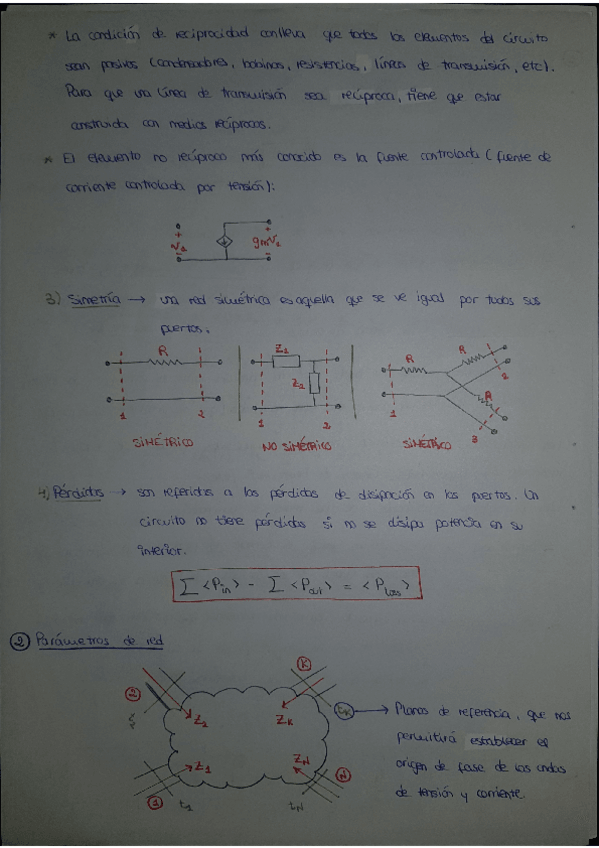 * La condición de reciprocidad conlleva que todos los elementos del circuito
sean pasivos (condensadores, bobinas, resistencias, líneas de transmisión, etc).
Para que una línea de transmisión sea recíproca, tiene que estar
construida con medios recíprocos.
* El elemento no recíproco más conocido es la fuente controlada (fuente de
corriente controlada por tensión):
+ +
V1 gmV1
- -
3) Simetría → una red simétrica es aquella que se ve igual por todos sus
puertos.
R Z1 R R
Z2 R
1 2 1 2 1 2
3
SIMÉTRICO NO SIMÉTRICO SIMÉTRICO
4) Pérdidas → son referidas a las pérdidas de disipación en los puertos. Un
circuito no tiene pérdidas si no se disipa potencia en su
interior.
∑ <Pin> - ∑ <Pout> = <Ploss>
② Parámetros de red
② K
Z2 ZK tK → Planos de referencia, que nos
permitirá establecer el
Z1 ZN N origen de fase de las ondas
① t1 tN de tensión y corriente